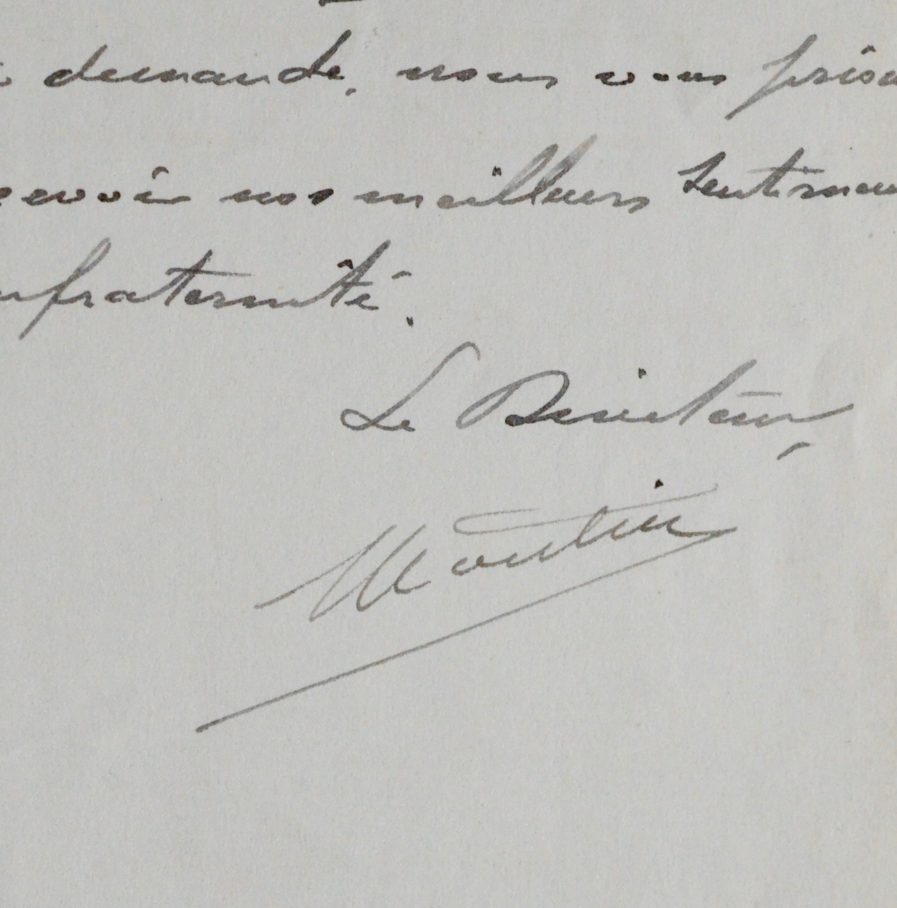 demande, nous vous prions
cevoir nos meilleurs sentimen
nfraternité.
Le Directeur,
Moutin